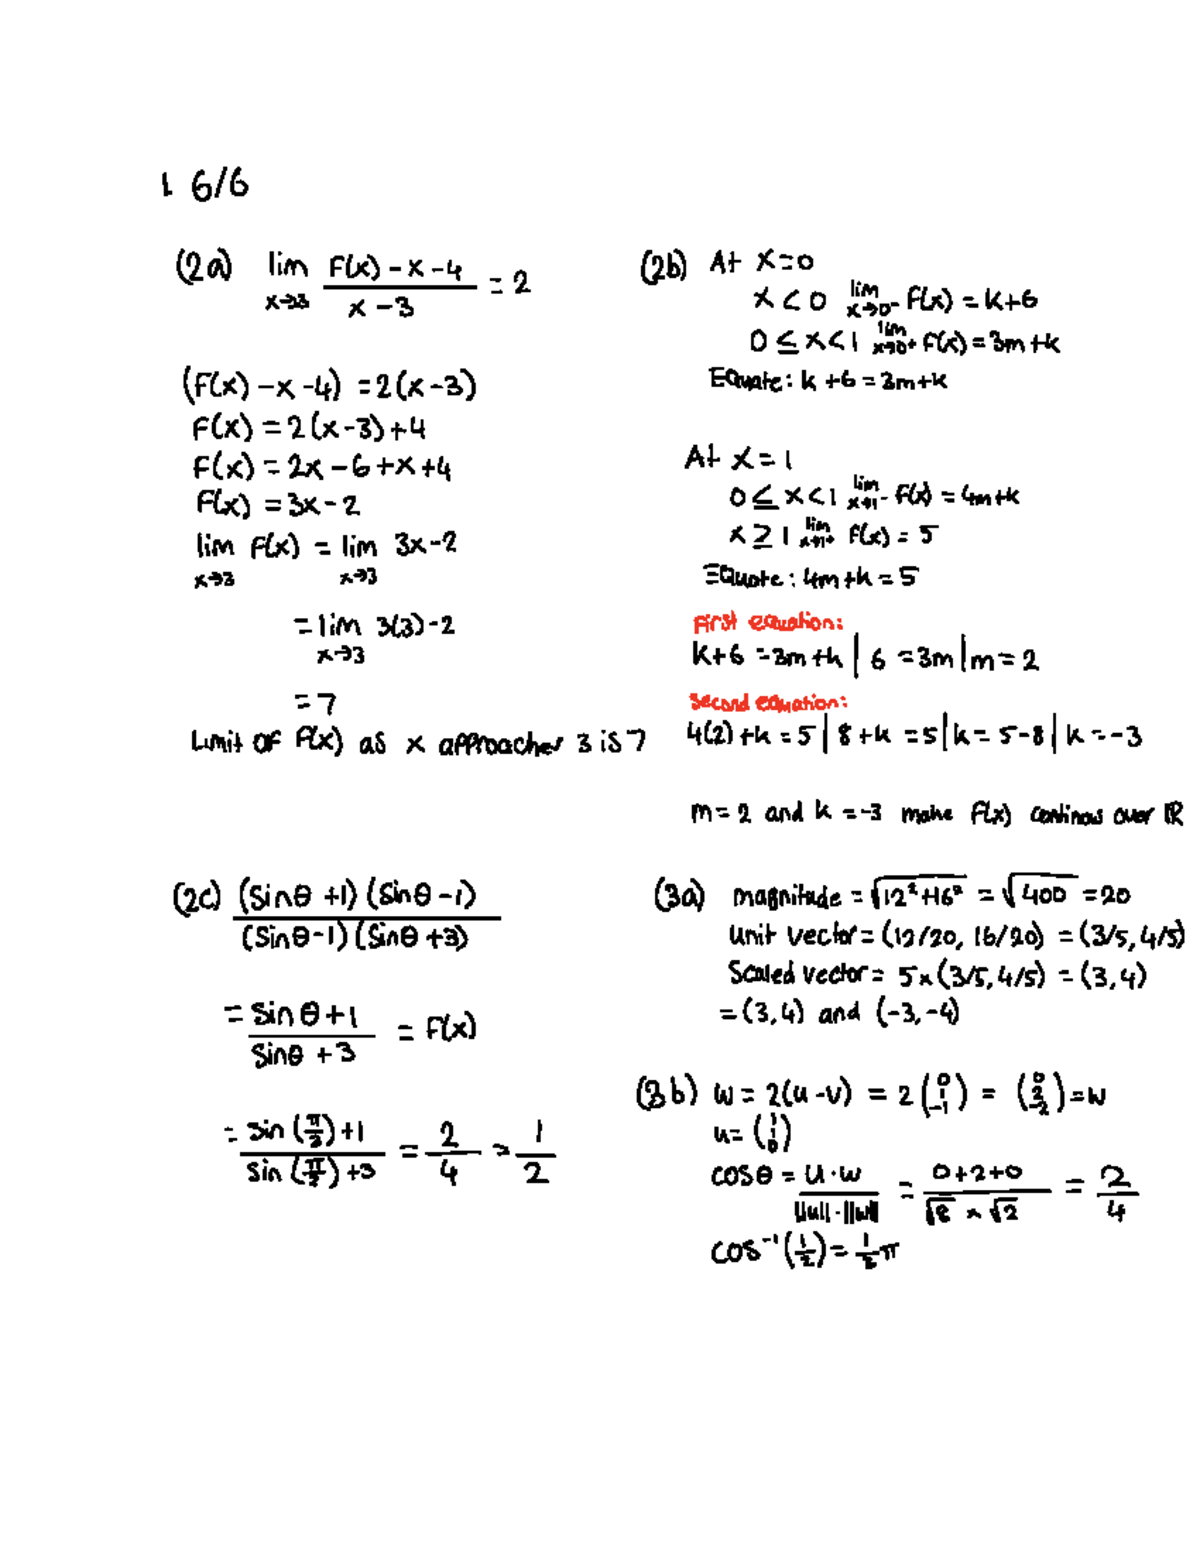 1. 6/6
(2a) lim x→3 (F(x) - x - 4)/(x - 3) = 2
(F(x) - x - 4) = 2(x-3)
F(x) = 2(x-3)+4
F(x) = 2x - 6 + x + 4
F(x) = 3x - 2
lim x→3 F(x) = lim x→3 3x-2
= lim x→3 3(3)-2
= 7
Limit OF F(x) as x approaches 3 is 7
(2b) At x=0
x < 0 lim x→0⁻ F(x) = k+6
0 ≤ x < 1 lim x→0⁺ F(x) = 3m+k
Equate: k+6 = 3m+k
At x = 1
0 ≤ x < 1 lim x→1⁻ F(x) = 4m+k
x ≥ 1 lim x→1⁺ F(x) = 5
Equate: 4m+k = 5
First equation:
k+6 = 3m+k | 6 = 3m | m = 2
Second equation:
4(2)+k = 5 | 8+k = 5 | k = 5-8 | k = -3
m = 2 and k = -3 make F(x) continous over ℝ
(2c) (Sinθ +1)(Sinθ -1)/(Sinθ -1)(Sinθ +3)
= Sinθ+1/Sinθ+3 = F(x)
= Sin(π/2)+1/Sin(π/2)+3 = 2/4 = 1/2
(3a) magnitude = √12²+16² = √400 = 20
Unit vector = (12/20, 16/20) = (3/5, 4/5)
Scaled vector = 5×(3/5, 4/5) = (3,4)
= (3,4) and (-3,-4)
(3b) w = 2(u-v) = 2(0 1 -1) = (0 2 -2) = w
u = (1 1 0)
cosθ = u·w/||u||·||w|| = 0+2+0/√8 × √2 = 2/4
cos⁻¹(1/2) = 1/3 π